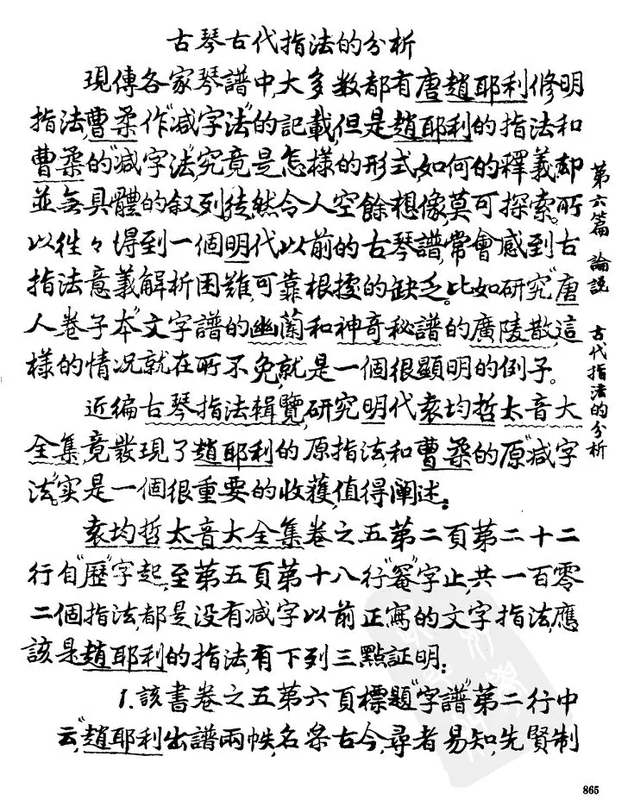 古琴古代指法的分析
現傳各家琴譜中,大多数都有唐趙耶利修明
指法,曹柔作"减字法"的記載,但是趙耶利的指法和
曹柔的"减字法",究竟是怎樣的形式,如何的釋義却
並無具體的叙列,徒然令人空餘想像,莫可探索。所
以往々得到一個明代以前的古琴譜,常會感到古
指法意義解析困难,可靠根據的缺乏。比如研究"唐
人卷子本"文字譜的幽蘭和神奇秘譜的廣陵散,這
樣的情况就在所不免,就是一個很顯明的例子。
近編古琴指法輯覽,研究明代袁均哲太音大
全集竟發現了趙耶利的原指法,和曹柔的原"减字
法",实是一個很重要的收獲,值得阐述。
袁均哲太音大全集卷之五第二頁第二十二
行自"歷"字起,至第五頁第十八行"罨"字止,共一百零
二個指法,都是没有减字以前正寫的文字指法,應
該是趙耶利的指法,有下列三點証明:
1.該書卷之五第六頁標題"字譜"第二行中
云,"趙耶利出譜兩帙,名条古今,尋者易知,先賢制
第六篇 論説 古代指法的分析
865